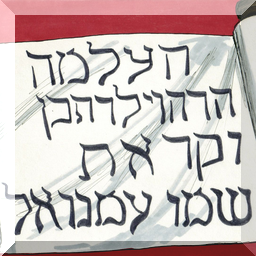 העלמה
הרהוילדתבן
וקר את
שמו עמנואל